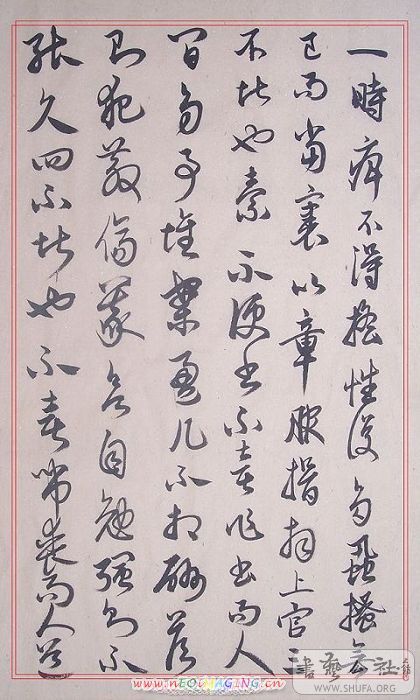 一時痹不得搖性復多虱搔无
已而當裹以章服揖拜上官三
不堪也素不便書不喜作書而人
間多事堆案盈几不相酬答
則犯教傷義欲自勉強則不
能久四不堪也不喜弔喪而人道
www.nEOiMAGING.cn
書藝公社
WWW.SHUFA.ORG